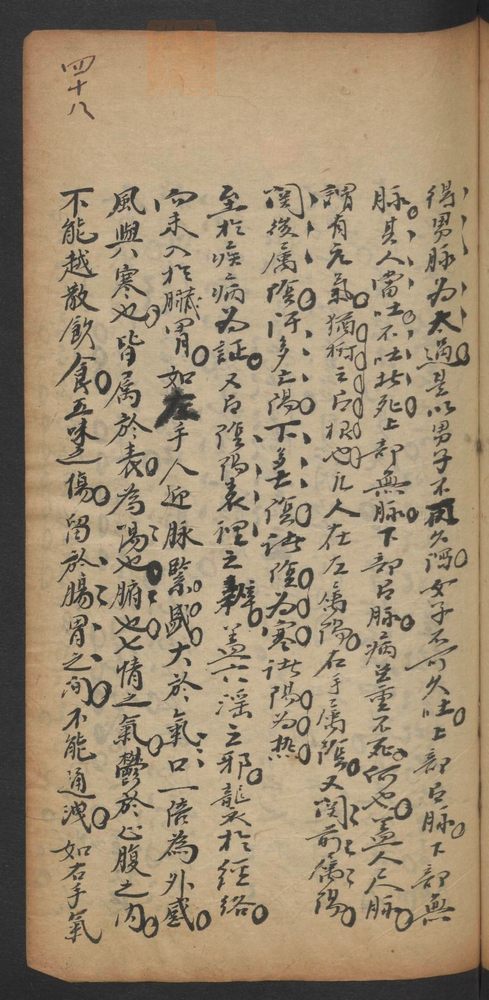 得男脉为太過是以男子不可久瀉女子不可久吐上部有脉下部無
脉其人當吐不吐者死上部無脉下部有脉病虽重不死何也盖人之尺脉
謂有元氣猶樹之有根也凡人在左屬陽右手屬陰又関前屬陽
関後屬陰汗多亡陽下多亡陰諸陰為寒諸陽為热
至於疾病為証又有陰陽表裡之辜盖六淫之邪襲於經络
而未入於臟胃如左手人迎脉緊盛大於氣口一倍為外感
風與寒也皆属於表為陽也腑也七情之氣鬱於心腹之内
不能越散飲食五味之傷留於腸胃之间不能通泄如右手氣
四十八